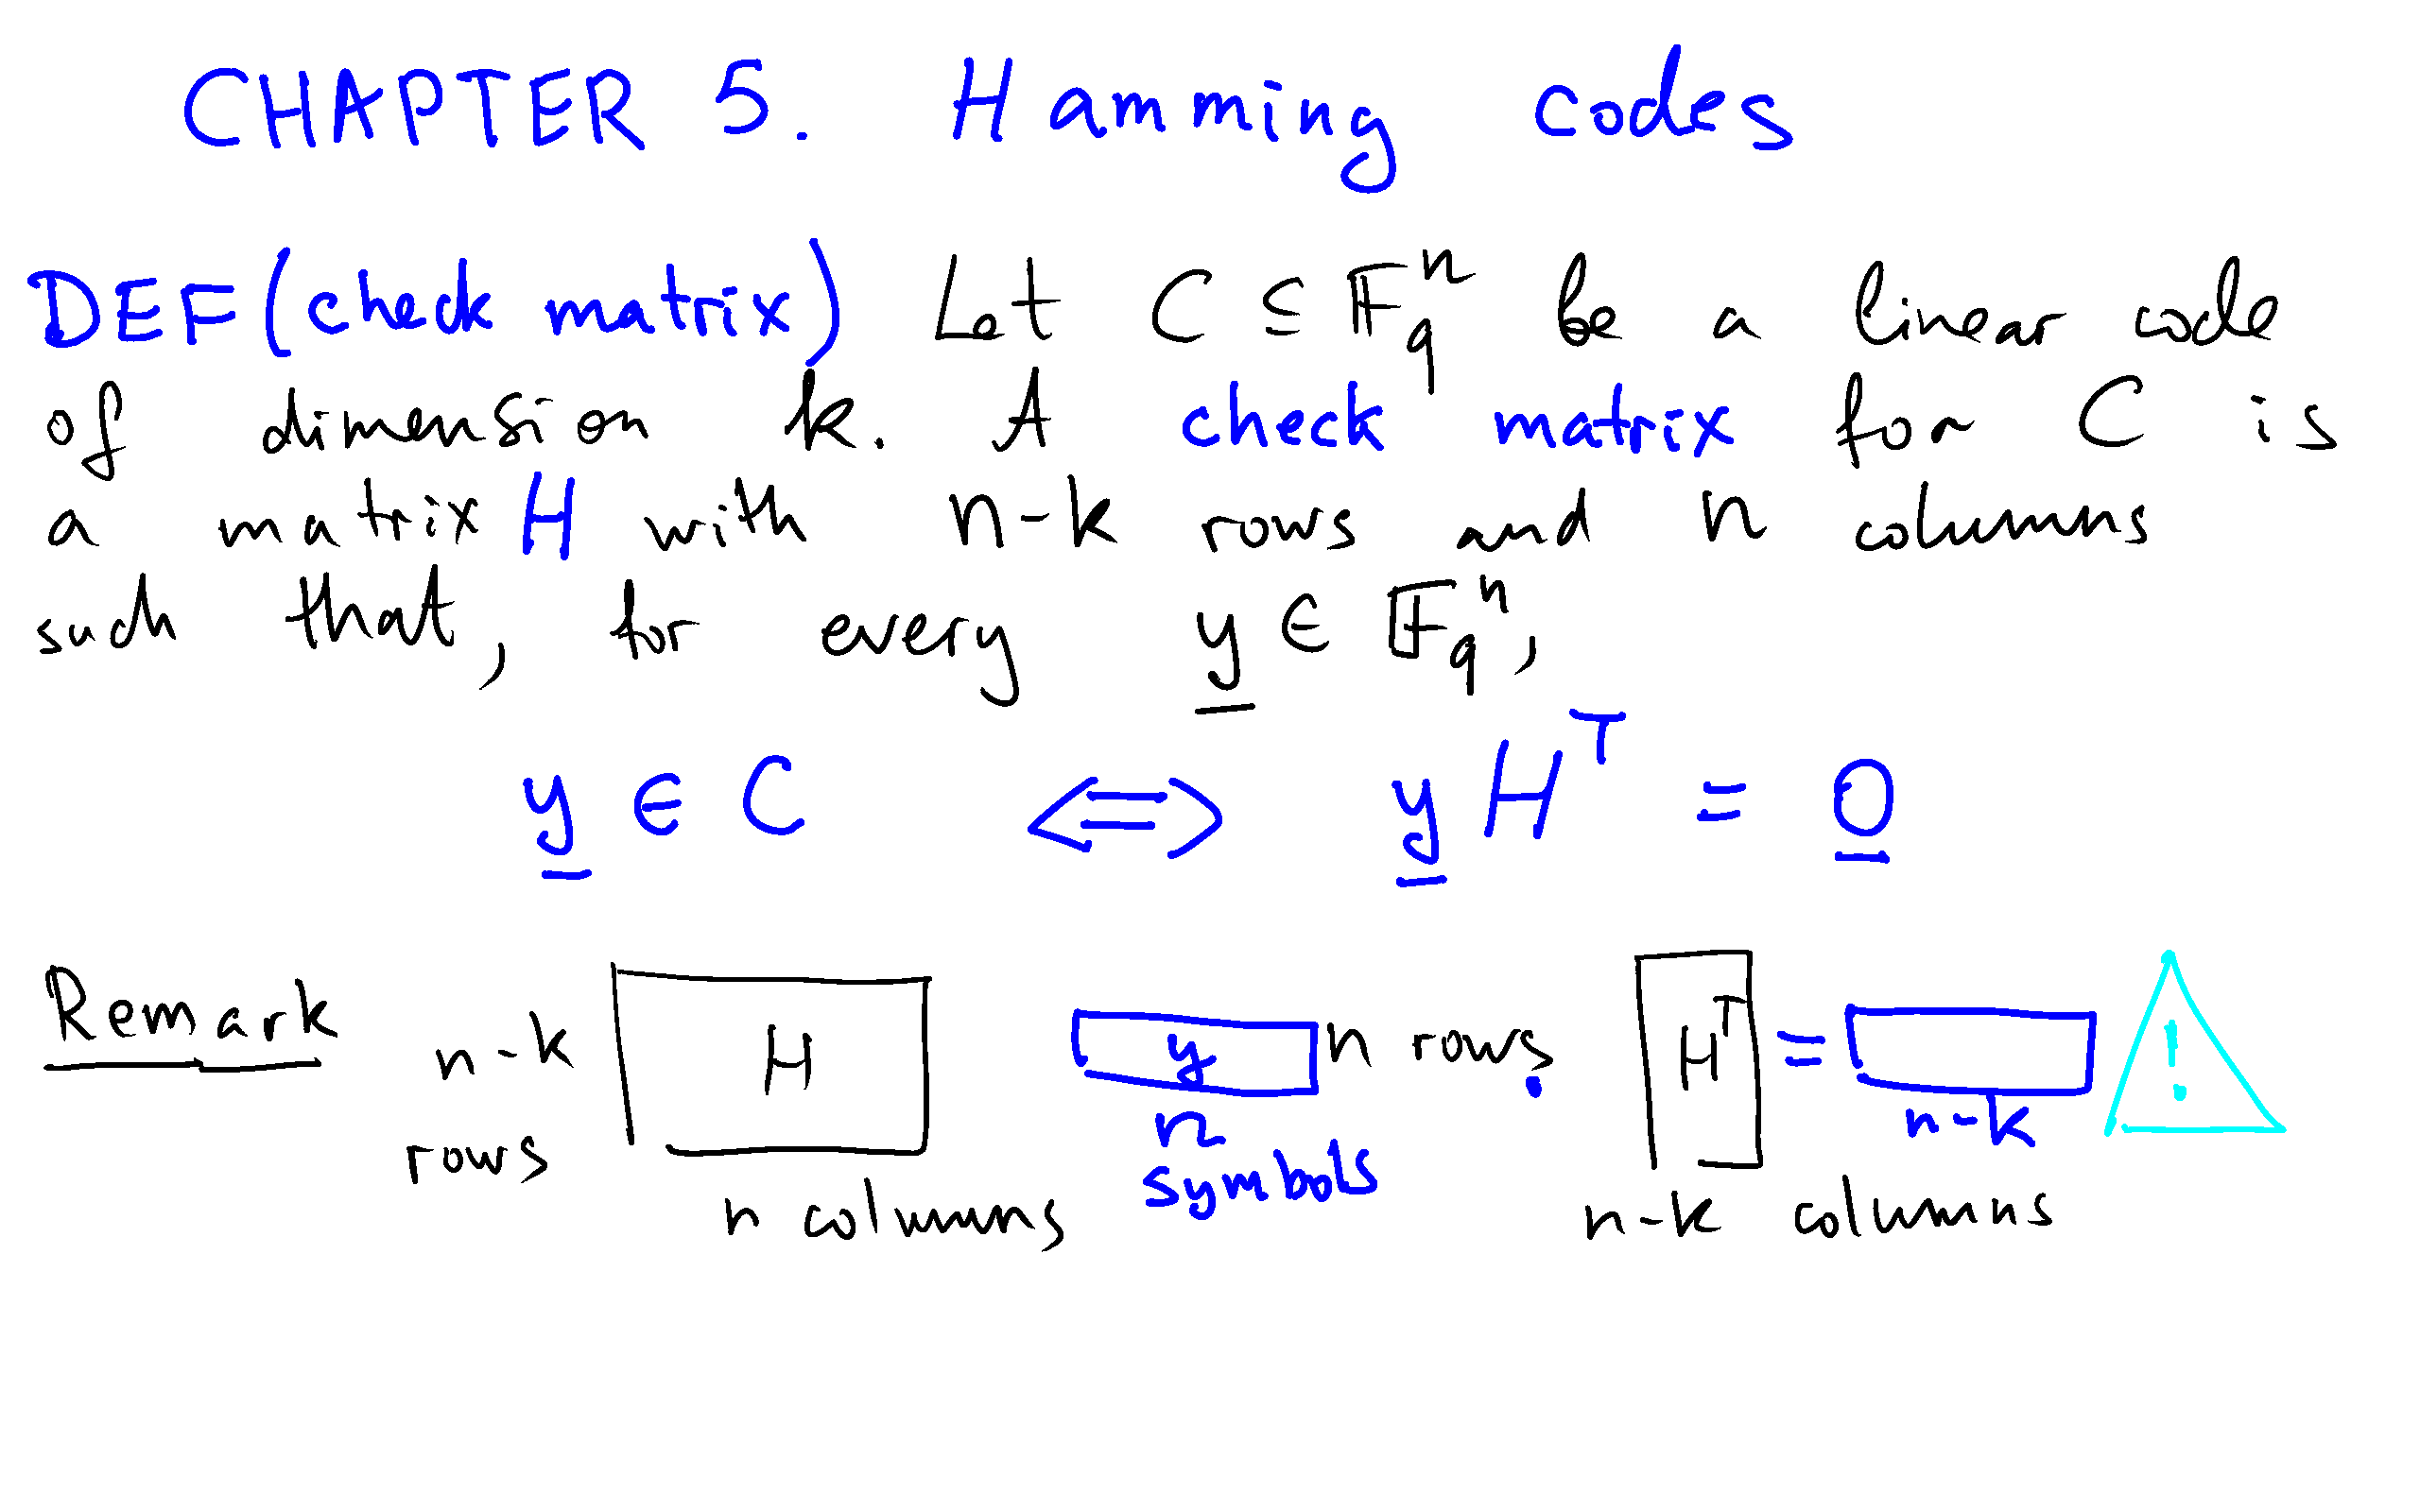 CHAPTER 5. Hamming codes
DEF (check matrix) Let C ⊆ 𝔽_q^n be a linear code
of dimension k. A check matrix for C is
a matrix H with n-k rows and n columns
such that, for every y ∈ 𝔽_q^n,
y ∈ C ⟺ y H^T = 0
Remark
n-k
rows
H
n columns
y
n
symbols
n rows
H^T
n-k columns
=
n-k
!